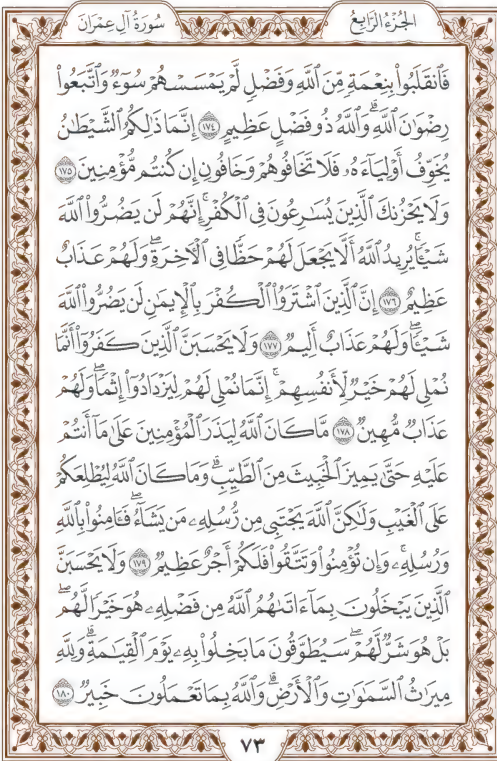 سُورَةُ آلِ عِمْرَانَ
الجُزْءُ الرَّابِعُ
فَٱنقَلَبُوا۟ بِنِعْمَةٍ مِّنَ ٱللَّهِ وَفَضْلٍ لَّمْ يَمْسَسْهُمْ سُوٓءٌ وَٱتَّبَعُوا۟
رِضْوَٰنَ ٱللَّهِ ۗ وَٱللَّهُ ذُو فَضْلٍ عَظِيمٍ ١٧٤ إِنَّمَا ذَٰلِكُمُ ٱلشَّيْطَٰنُ
يُخَوِّفُ أَوْلِيَآءَهُۥ فَلَا تَخَافُوهُمْ وَخَافُونِ إِن كُنتُم مُّؤْمِنِينَ ١٧٥
وَلَا يَحْزُنكَ ٱلَّذِينَ يُسَٰرِعُونَ فِى ٱلْكُفْرِ ۚ إِنَّهُمْ لَن يَضُرُّوا۟ ٱللَّهَ
شَيْـًٔا ۗ يُرِيدُ ٱللَّهُ أَلَّا يَجْعَلَ لَهُمْ حَظًّا فِى ٱلْءَاخِرَةِ ۖ وَلَهُمْ عَذَابٌ
عَظِيمٌ ١٧٦ إِنَّ ٱلَّذِينَ ٱشْتَرَوُا۟ ٱلْكُفْرَ بِٱلْإِيمَٰنِ لَن يَضُرُّوا۟ ٱللَّهَ
شَيْـًٔا ۖ وَلَهُمْ عَذَابٌ أَلِيمٌ ١٧٧ وَلَا يَحْسَبَنَّ ٱلَّذِينَ كَفَرُوٓا۟ أَنَّمَا
نُمْلِى لَهُمْ خَيْرٌ لِّأَنفُسِهِمْ ۚ إِنَّمَا نُمْلِى لَهُمْ لِيَزْدَادُوٓا۟ إِثْمًا ۚ وَلَهُمْ
عَذَابٌ مُّهِينٌ ١٧٨ مَّا كَانَ ٱللَّهُ لِيَذَرَ ٱلْمُؤْمِنِينَ عَلَىٰ مَآ أَنتُمْ
عَلَيْهِ حَتَّىٰ يَمِيزَ ٱلْخَبِيثَ مِنَ ٱلطَّيِّبِ ۗ وَمَا كَانَ ٱللَّهُ لِيُطْلِعَكُمْ
عَلَى ٱلْغَيْبِ وَلَٰكِنَّ ٱللَّهَ يَجْتَبِى مِن رُّسُلِهِۦ مَن يَشَآءُ ۖ فَـَٔامِنُوا۟ بِٱللَّهِ
وَرُسُلِهِۦ ۚ وَإِن تُؤْمِنُوا۟ وَتَتَّقُوا۟ فَلَكُمْ أَجْرٌ عَظِيمٌ ١٧٩ وَلَا يَحْسَبَنَّ
ٱلَّذِينَ يَبْخَلُونَ بِمَآ ءَاتَىٰهُمُ ٱللَّهُ مِن فَضْلِهِۦ هُوَ خَيْرًا لَّهُم ۖ
بَلْ هُوَ شَرٌّ لَّهُمْ ۖ سَيُطَوَّقُونَ مَا بَخِلُوا۟ بِهِۦ يَوْمَ ٱلْقِيَٰمَةِ ۗ وَلِلَّهِ
مِيرَٰثُ ٱلسَّمَٰوَٰتِ وَٱلْأَرْضِ ۗ وَٱللَّهُ بِمَا تَعْمَلُونَ خَبِيرٌ ١٨٠
٧٣